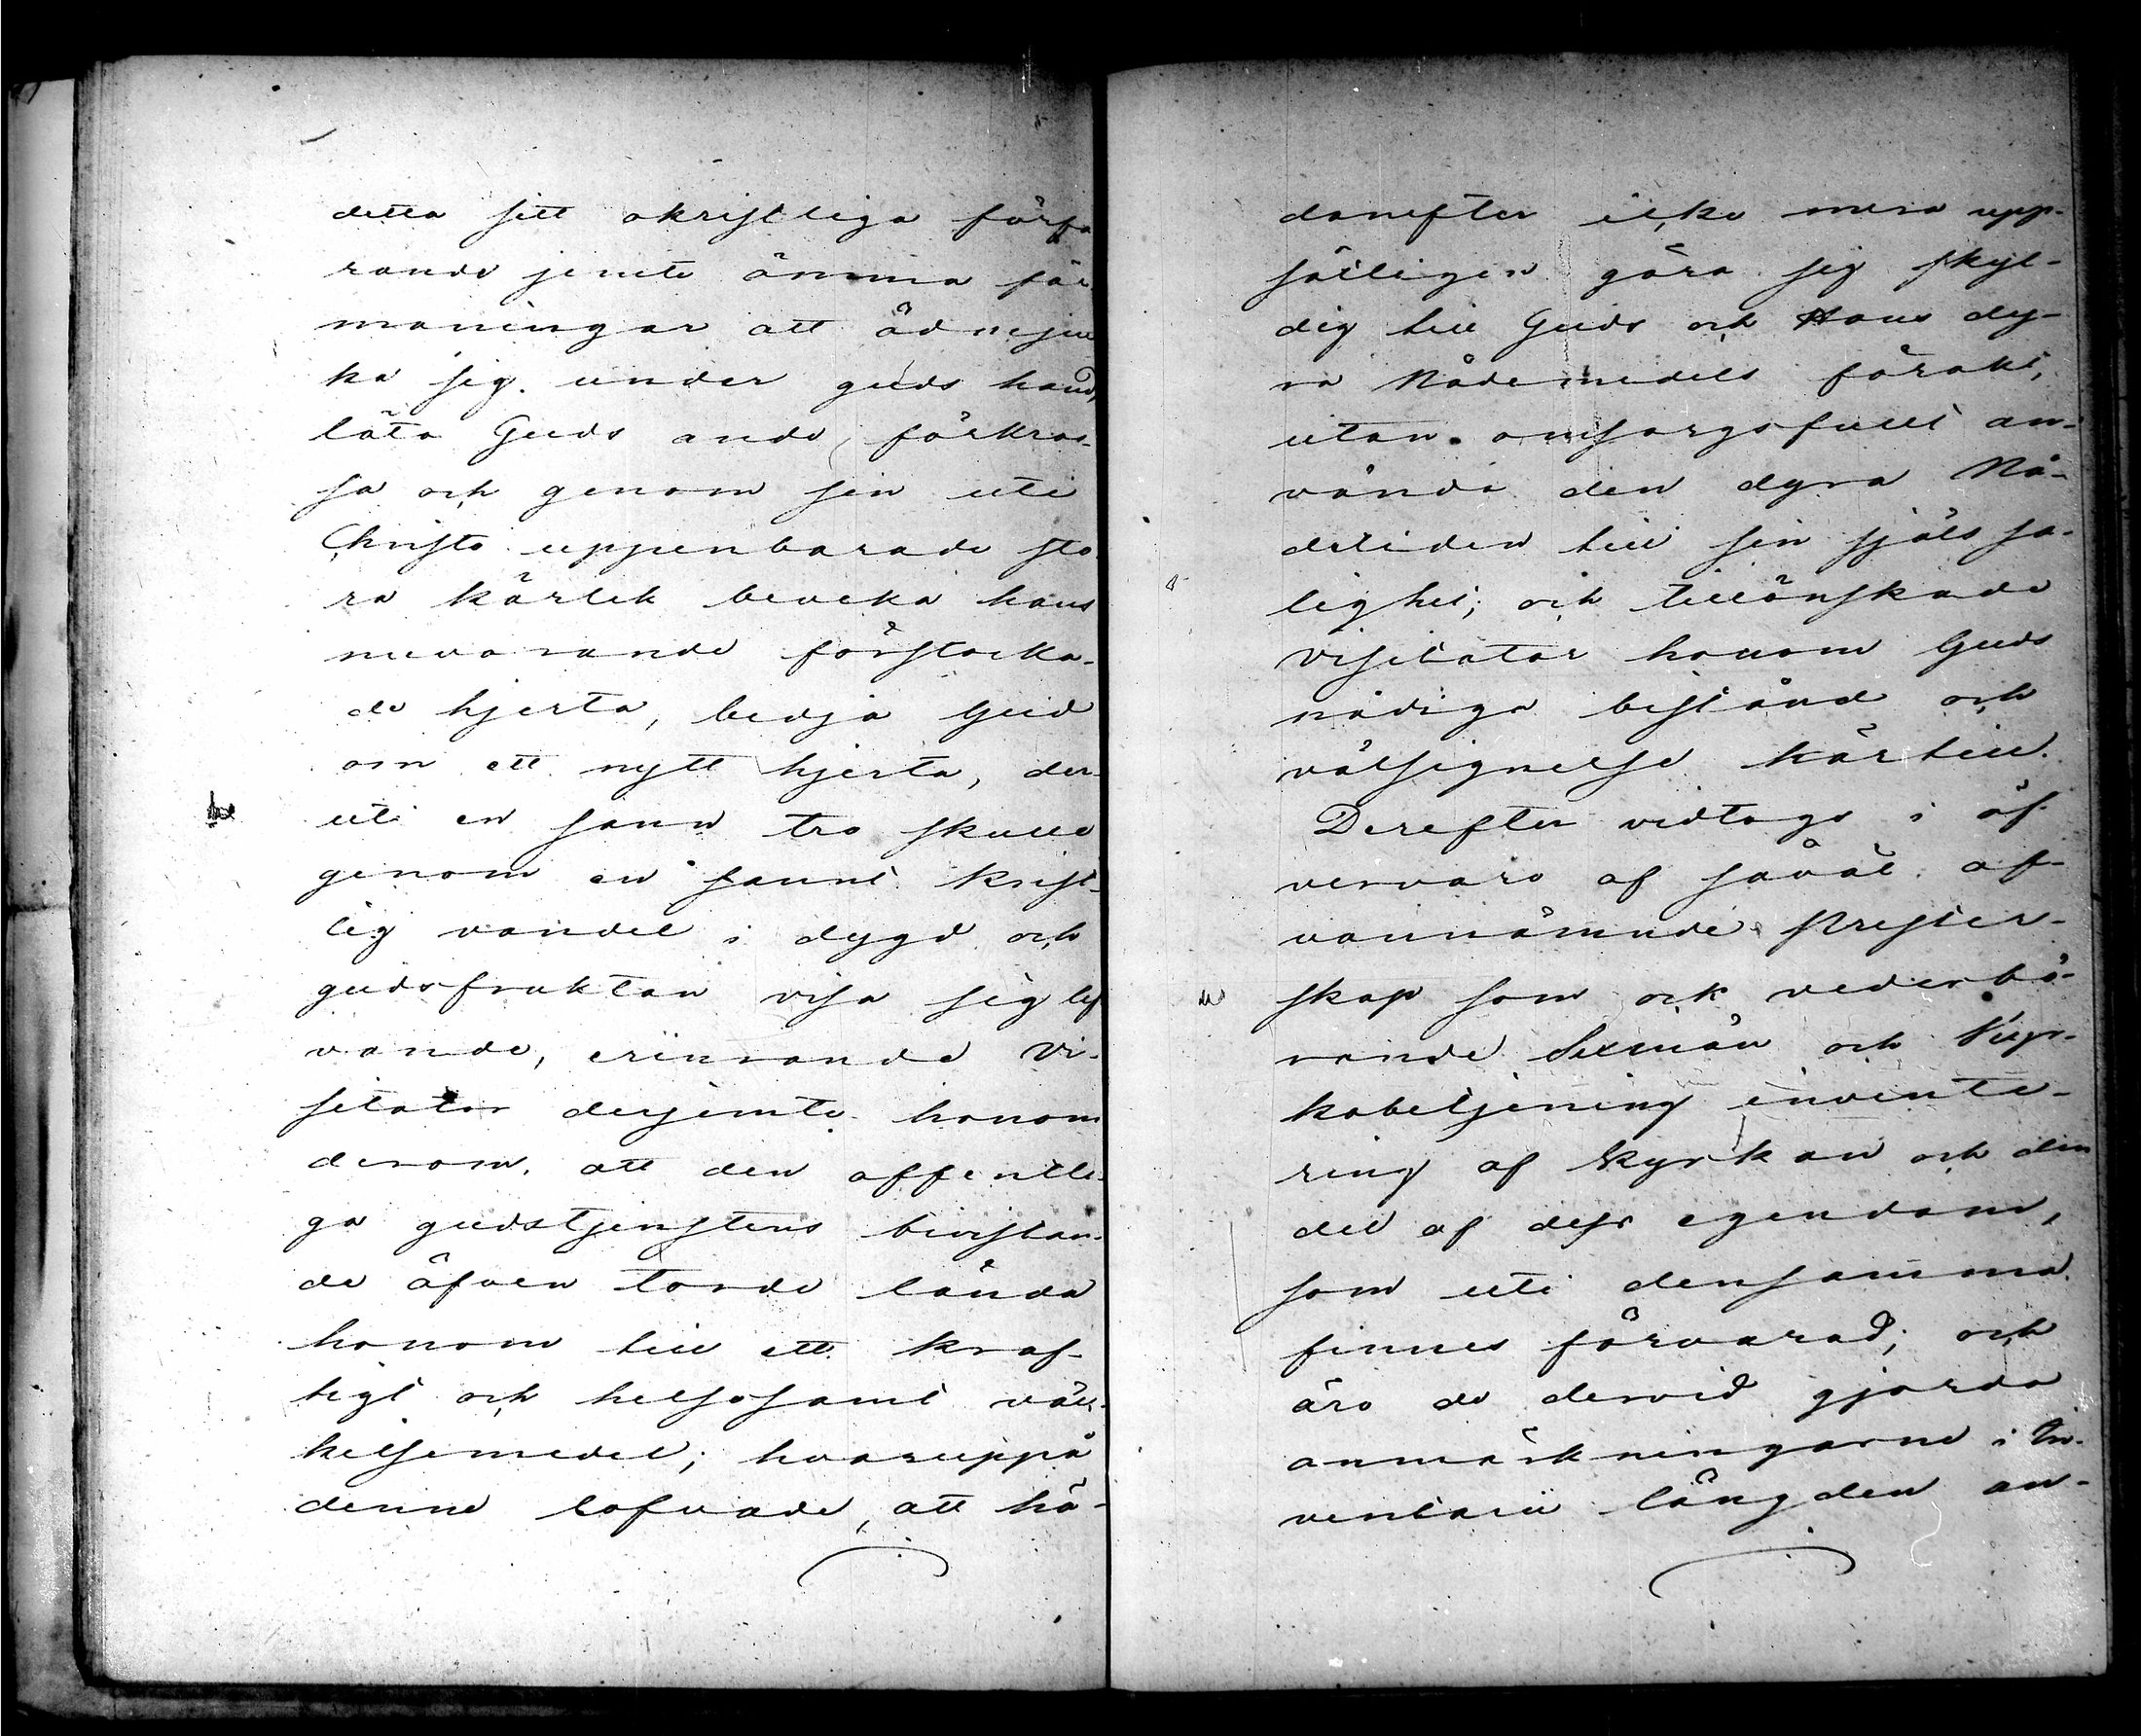 detta sitt okristliga förfa
rande jemte ömma för
maningar att ödmju
ka sig under guds hand,
låta Guds ande förkros-
sa och genom sin uti
Christo uppenbarade sto
ra kärlek beveka hans
nuvarande förstocka-
de hjerta, bedja Gud
om ett nytt hjerta, der-
uti en sann tro skulle
genom en sannt krist-
lig vandel i dygd och
gudsfruktan visa sig lef
vande, erinrande Vi-
sitator derjemte honom
derom, att den offentli-
ga gudstjenstens bevistan-
de äfven torde lända
honom till ett kraf-
tigt och helsosamt väc-
kelsemedel; hvaruppå
denne lofvade, att hä-
danefter icke mera upp-
såtligen göra sig skyl-
dig till Guds och Hans dy-
ra Nådemedels förakt,
utan omsorgsfullt an-
vända den dyra Nå-
detiden till sin själs sa-
lighet; och tillönskade
visitator honom Guds
nådiga bistånd och
välsignelse härtill.
Derefter vidtogs i öf-
vervaro af såväl of-
vannämnde Prester-
skap som ock vederbö-
rande Sexmän och Kyr-
kobetjening invente-
ring af kyrkan och den
del af dess egendom,
som uti densamma
finnes förvarad; och
äro de dervid gjorda
anmärkningarne i In-
ventarii längden an-